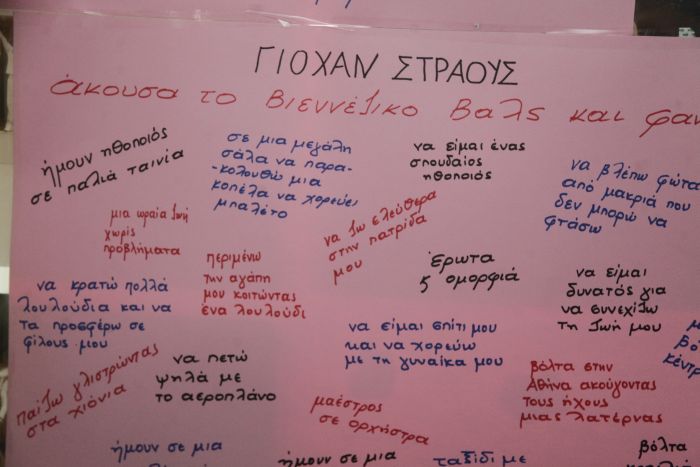 ΓΙΟΧΑΝ ΣΤΡΑΟΥΣ
άκουσα το βιεννέζικο βαλς και φαν
ήμουν ηθοποιός
σε παλιά ταινία
σε μια μεγάλη
σάλα να παρα-
-κολουθώ μια
κοπέλα να χορεύει
μπαλέτο
να είμαι ένας
σπουδαίος
ηθοποιός
να βλέπω φώτα
από μακριά που
δεν μπορώ να
φτάσω
μια ωραία ζωή
χωρίς
προβλήματα
περιμένω
την αγάπη
μου κοιτώντας
ένα λουλούδι
να ζω ελεύθερα
στην πατρίδα
μου
έρωτα
ς ομορφιά
να είμαι
δυνατός για
να συνεχίζω
τη ζωή μου
να κρατώ πολλά
λουλούδια και να
τα προσφέρω σε
φίλους μου
να είμαι σπίτι μου
και να χορεύω
με τη γυναίκα μου
μ
βόλ
κέντρ
παίζω γλιστρώντας
στα χιόνια
να πετώ
ψηλά με
το αεροπλάνο
μαέστρος
σε ορχήστρα
βόλτα στην
Αθήνα ακούγοντας
τους ήχους
μιας λατέρνας
ήμουν σε μια
ήμουν σε μια
ταξίδι με
βόλτα